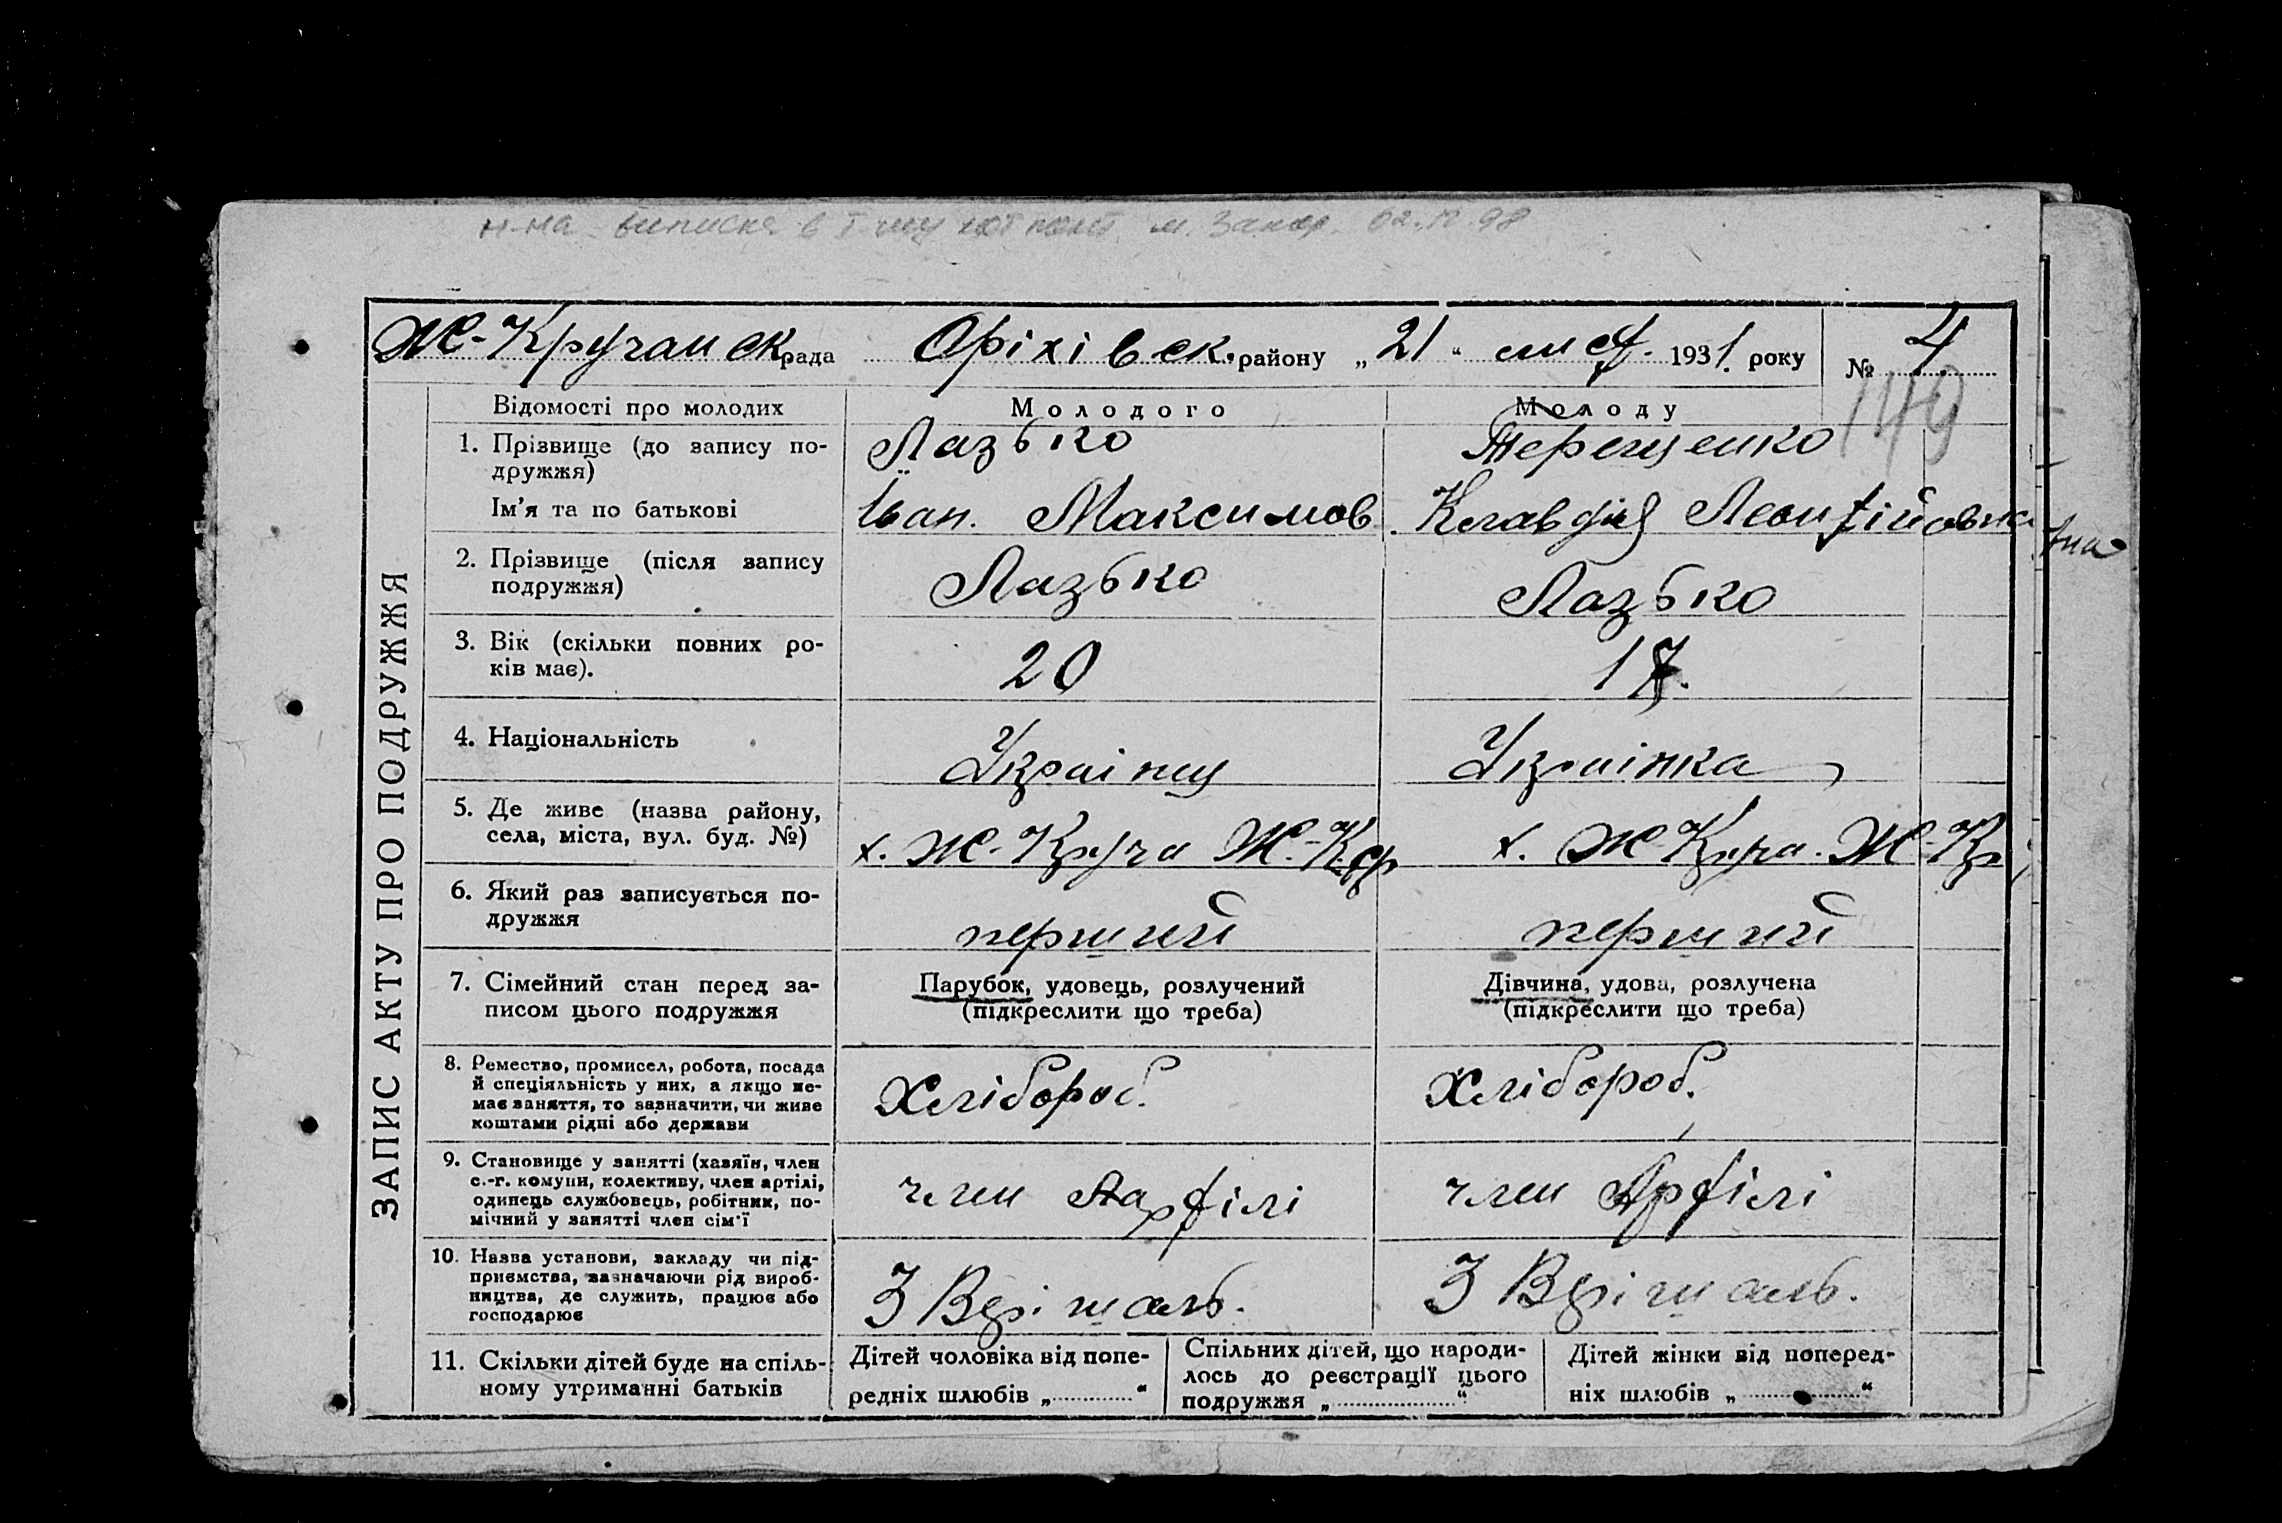 н-на виписка в м. Запор. 02.12.98
Ж-Кручанск рада Оріхівск. району „21“ лист. 1931. року № 4
149
ЗАПИС АКТУ ПРО ПОДРУЖЖЯ
Відомості про молодих Молодого Молоду
1. Прізвище (до запису по- Лазько Терещенко
дружжя)
Ім'я та по батькові Іван. Максимов. Клавдія Леонтійовна
2. Прізвище (після запису Лазько Лазько
подружжя)
3. Вік (скільки повних ро- 20 17.
ків має).
4. Національність Украінц Украінка
5. Де живе (назва району, х. Ж-Круча Ж.-К.ср х. Ж-Круча. Ж-Кр
села, міста, вул. буд. №)
6. Який раз записується по- перший перший
дружжя
7. Сімейний стан перед за- Парубок, удовець, розлучений Дівчина, удова, розлучена
писом цього подружжя (підкреслити що треба) (підкреслити що треба)
8. Ремество, промисел, робота, посада Хлібороб. Хлібороб.
й спеціяльність у них, а якщо не-
має заняття, то зазначити, чи живе
коштами рідні або держави
9. Становище у занятті (хазяїн, член член Артілі член Артілі
с.-г. комуни, колективу, член артілі,
одинець службовець, робітник, по-
мічний у занятті член сім'ї
10. Назва установи, закладу чи під- З Врішаль. З Врішаль.
приємства, зазначаючи рід вироб-
ництва, де служить, працює або
господарює
11. Скільки дітей буде на спіль- Дітей чоловіка від попе- Спільних дітей, що народи- Дітей жінки від поперед-
ному утриманні батьків редніх шлюбів „ “ лось до реєстрації цього ніх шлюбів „ “
подружжя „ “